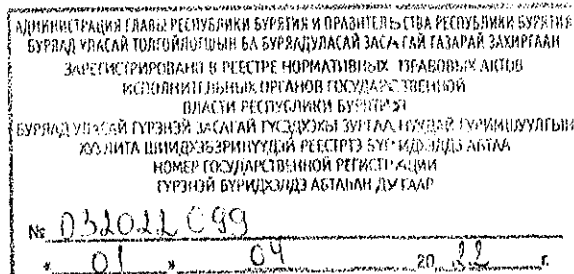 АДМИНИСТРАЦИЯ ГЛАВЫ РЕСПУБЛИКИ БУРЯТИЯ И ПРАВИТЕЛЬСТВА РЕСПУБЛИКИ БУРЯТИЯ
БУРЯАД УЛАСАЙ ТОЛГОЙЛОГШЫН БА БУРЯАД УЛАСАЙ ЗАСАГАЙ ГАЗАРАЙ ЗАХИРГААН
ЗАРЕГИСТРИРОВАНО В РЕЕСТРЕ НОРМАТИВНЫХ ПРАВОВЫХ АКТОВ
ИСПОЛНИТЕЛЬНЫХ ОРГАНОВ ГОСУДАРСТВЕННОЙ
ВЛАСТИ РЕСПУБЛИКИ БУРЯТИЯ
БУРЯАД УЛАСАЙ ГҮРЭНЭЙ ЗАСАГАЙ
РЕЕСТРТЭ БҮРИДХЭЛДЭ АБТАА
НОМЕР ГОСУДАРСТВЕННОЙ РЕГИСТРАЦИИ
ГҮРЭНЭЙ БҮРИДХЭЛДЭ АБТАҺАН ДУГААР
№ 032022099
" 01 " 04 20 22 г.